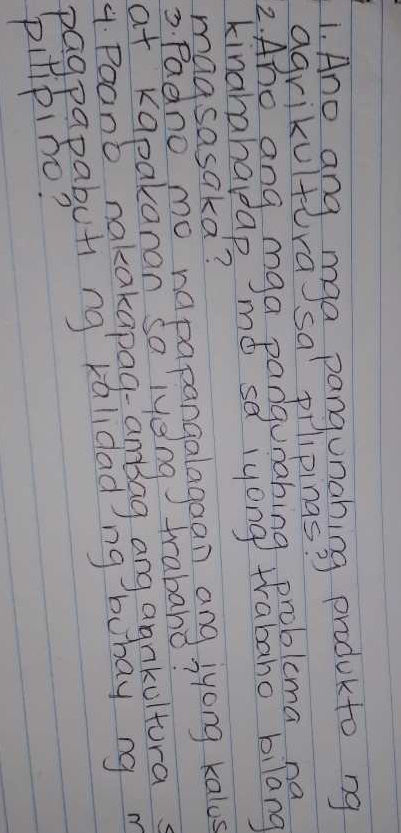 1. Ano ang mga pangunahing produkto ng
agrikultura sa pilipinas?
2. Ano ang mga pangunahing problema na
kinahaharap mo sa iyong trabaho bilang
magsasaka?
3. Paano mo napapangalagaan ang iyong kalus
at kapakanan sa iyong trabaho?
4. Paano nakakapag-ambag ang agrikultura s
pagpapabuti ng kalidad ng buhay ng m
pilipino?